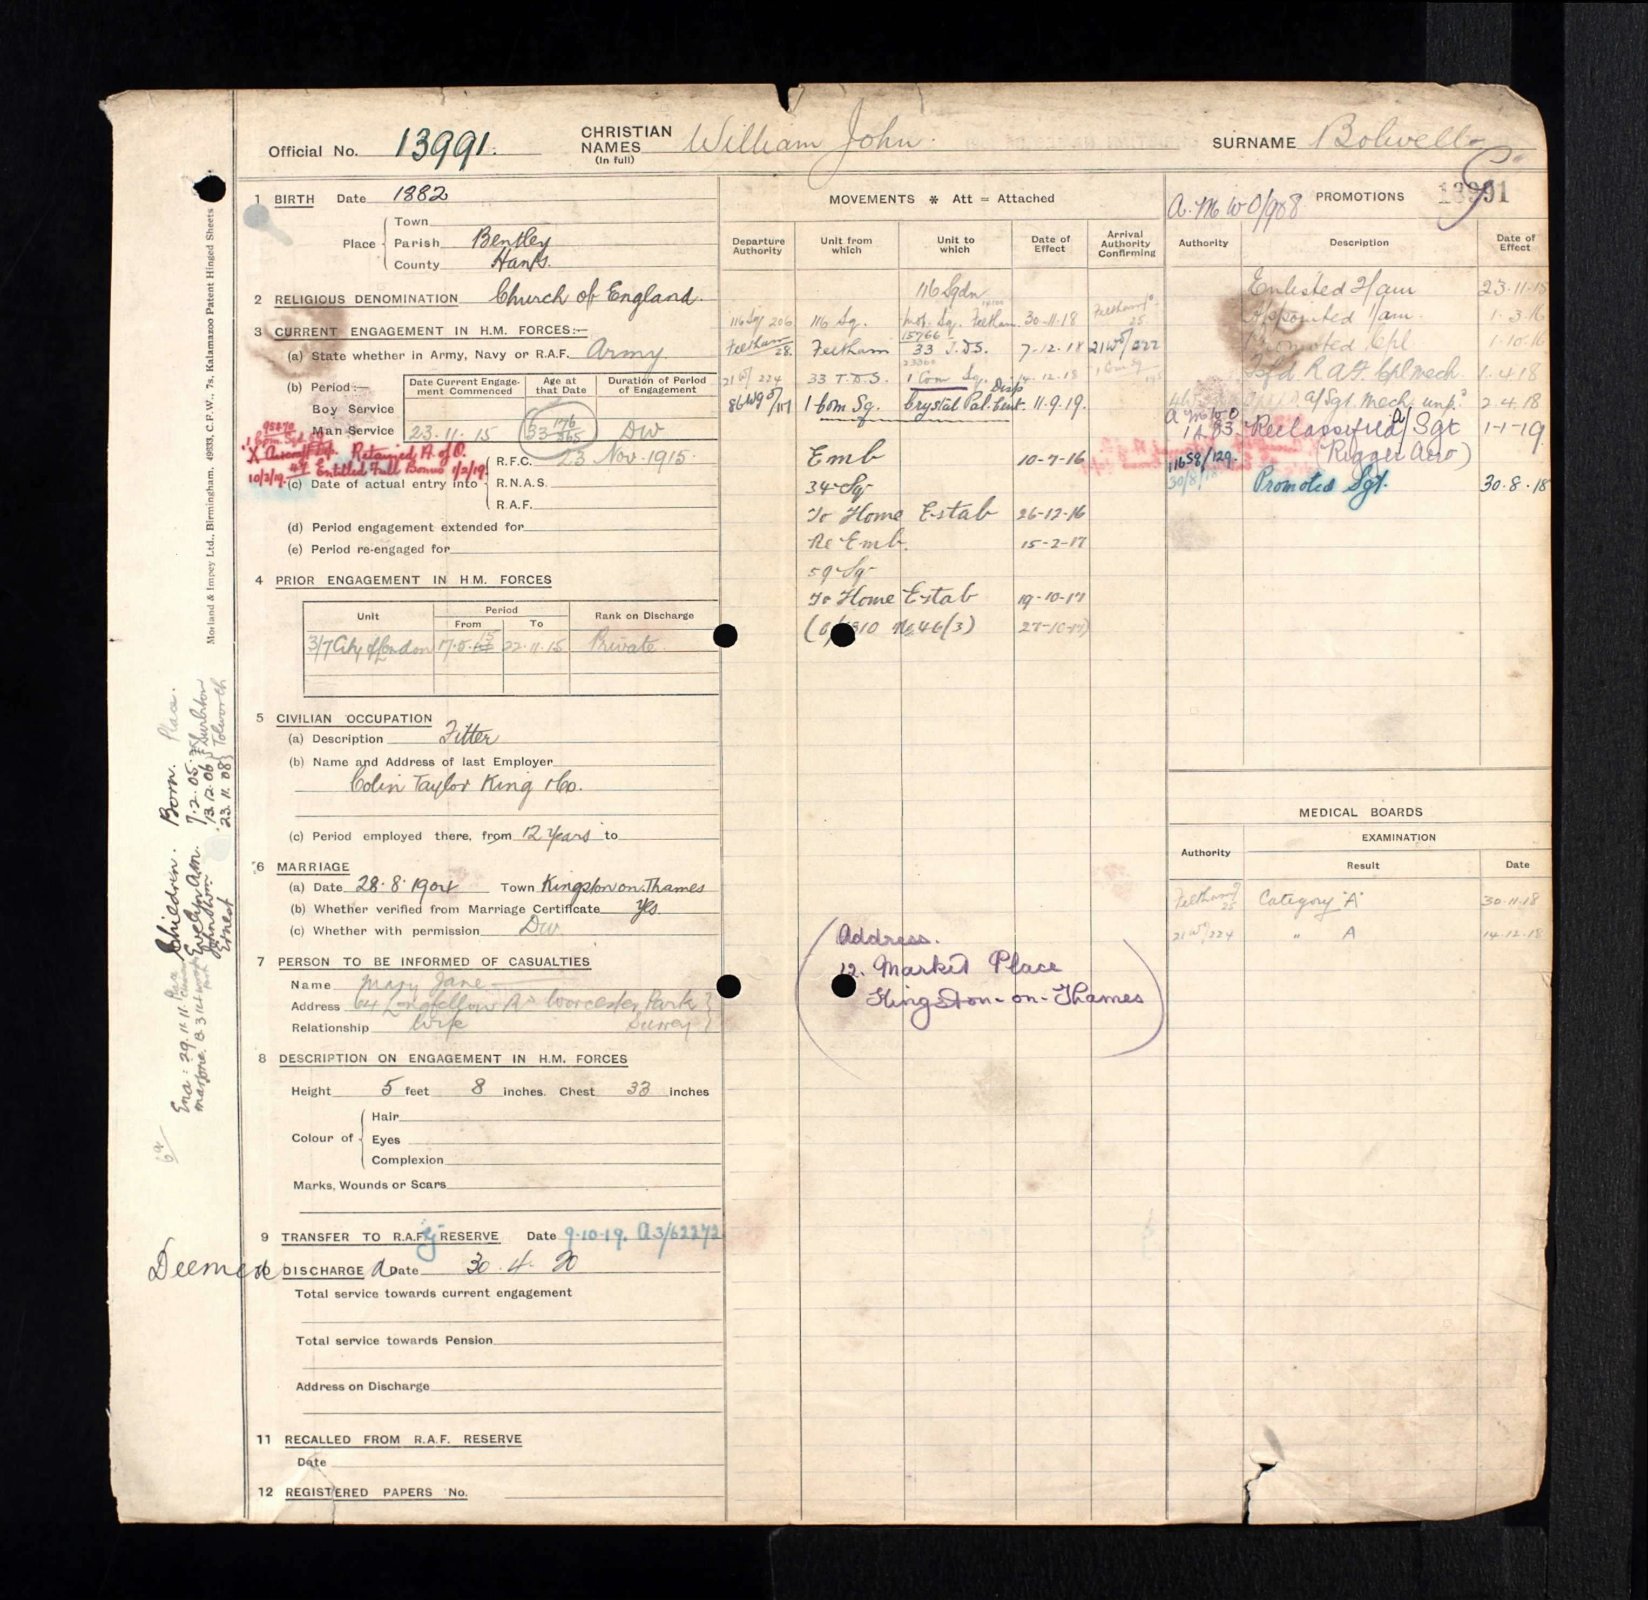 Official No. 13991. CHRISTIAN NAMES (In full) William John. SURNAME Bolwell
1 BIRTH Date 1882
Place Town
Parish Bentley
County Hants.
2 RELIGIOUS DENOMINATION Church of England.
3 CURRENT ENGAGEMENT IN H.M. FORCES:—
(a) State whether in Army, Navy or R.A.F. Army
(b) Period:—
Date Current Engagement Commenced Age at that Date Duration of Period of Engagement
Boy Service
Man Service 23.11.15 33 176/365 DW
95870
Retained A of O.
10/2/19. Entitled Full Bonus 1/2/19
(c) Date of actual entry into R.F.C. 23 Nov. 1915.
R.N.A.S.
R.A.F.
(d) Period engagement extended for
(e) Period re-engaged for
4 PRIOR ENGAGEMENT IN H.M. FORCES
Unit Period From To Rank on Discharge
3/7 City of London 17.5.15 22.11.15 Private
5 CIVILIAN OCCUPATION
(a) Description Fitter
(b) Name and Address of last Employer
Colin Taylor King & Co.
(c) Period employed there, from 12 Years to
6 MARRIAGE
(a) Date 28.8.1904 Town Kingston on Thames
(b) Whether verified from Marriage Certificate Yes
(c) Whether with permission DW
7 PERSON TO BE INFORMED OF CASUALTIES
Name Mary Jane
Address 64 Longfellow Rd Worcester Park
Relationship Wife Surrey
8 DESCRIPTION ON ENGAGEMENT IN H.M. FORCES
Height 5 feet 8 inches. Chest 33 inches
Colour of Hair
Eyes
Complexion
Marks, Wounds or Scars
9 TRANSFER TO R.A.F. RESERVE Date 9.10.19. A3/62272
Deemed DISCHARGE Date 30.4.20
Total service towards current engagement
Total service towards Pension
Address on Discharge
11 RECALLED FROM R.A.F. RESERVE
Date
12 REGISTERED PAPERS No.
MOVEMENTS * Att = Attached
Departure Authority Unit from which Unit to which Date of Effect Arrival Authority Confirming
116 Sqdn
116 Sq/ 206 116 Sq. Mob. Sq. Feltham 30.11.18 Feltham 25
Feltham 28. Feltham 15766 33 T.D.S. 7.12.18 21W/222
21W/224 33 T.D.S. 1 Com Sq. 14.12.18
86WG/117 1 Com Sq. Crystal Pal. Disp Cent. 11.9.19.
Emb 10-7-16
34 Sq
To Home Estab 26-12-16
Re Emb. 15-2-17
59 Sq
To Home Estab 19-10-17
27-10-17
Address.
12. Market Place
Kingston-on-Thames
A.M.W.O/988 PROMOTIONS 13991
Authority Description Date of Effect
Enlisted 2/am 23.11.15
Appointed 1/am. 1.3.16
Promoted Cpl 1-10-16
Tfd R.A.F. Cpl Mech 1.4.18
a/Sgt. Mech. unp. 2.4.18
A.M.W.O Reclassified a/Sgt 1-1-19
(Rigger Aero)
1658/129. 30/8/18 Promoted Sgt. 30.8.18
MEDICAL BOARDS
EXAMINATION
Authority Result Date
Feltham 25 Category "A" 30.11.18
21W/224 " A 14.12.18
Morland & Impey Ltd., Birmingham, 49933, C.F.W., 7s, Kalamazoo Patent Hinged Sheets
Children. Born. Place.
Evelyn A.M. 7.2.05. Surbiton
John Wm. 13.12.06
Ernest 23.11.08 Tolworth
Ena: 29.11.11
Marjorie. 8.3.14
6a